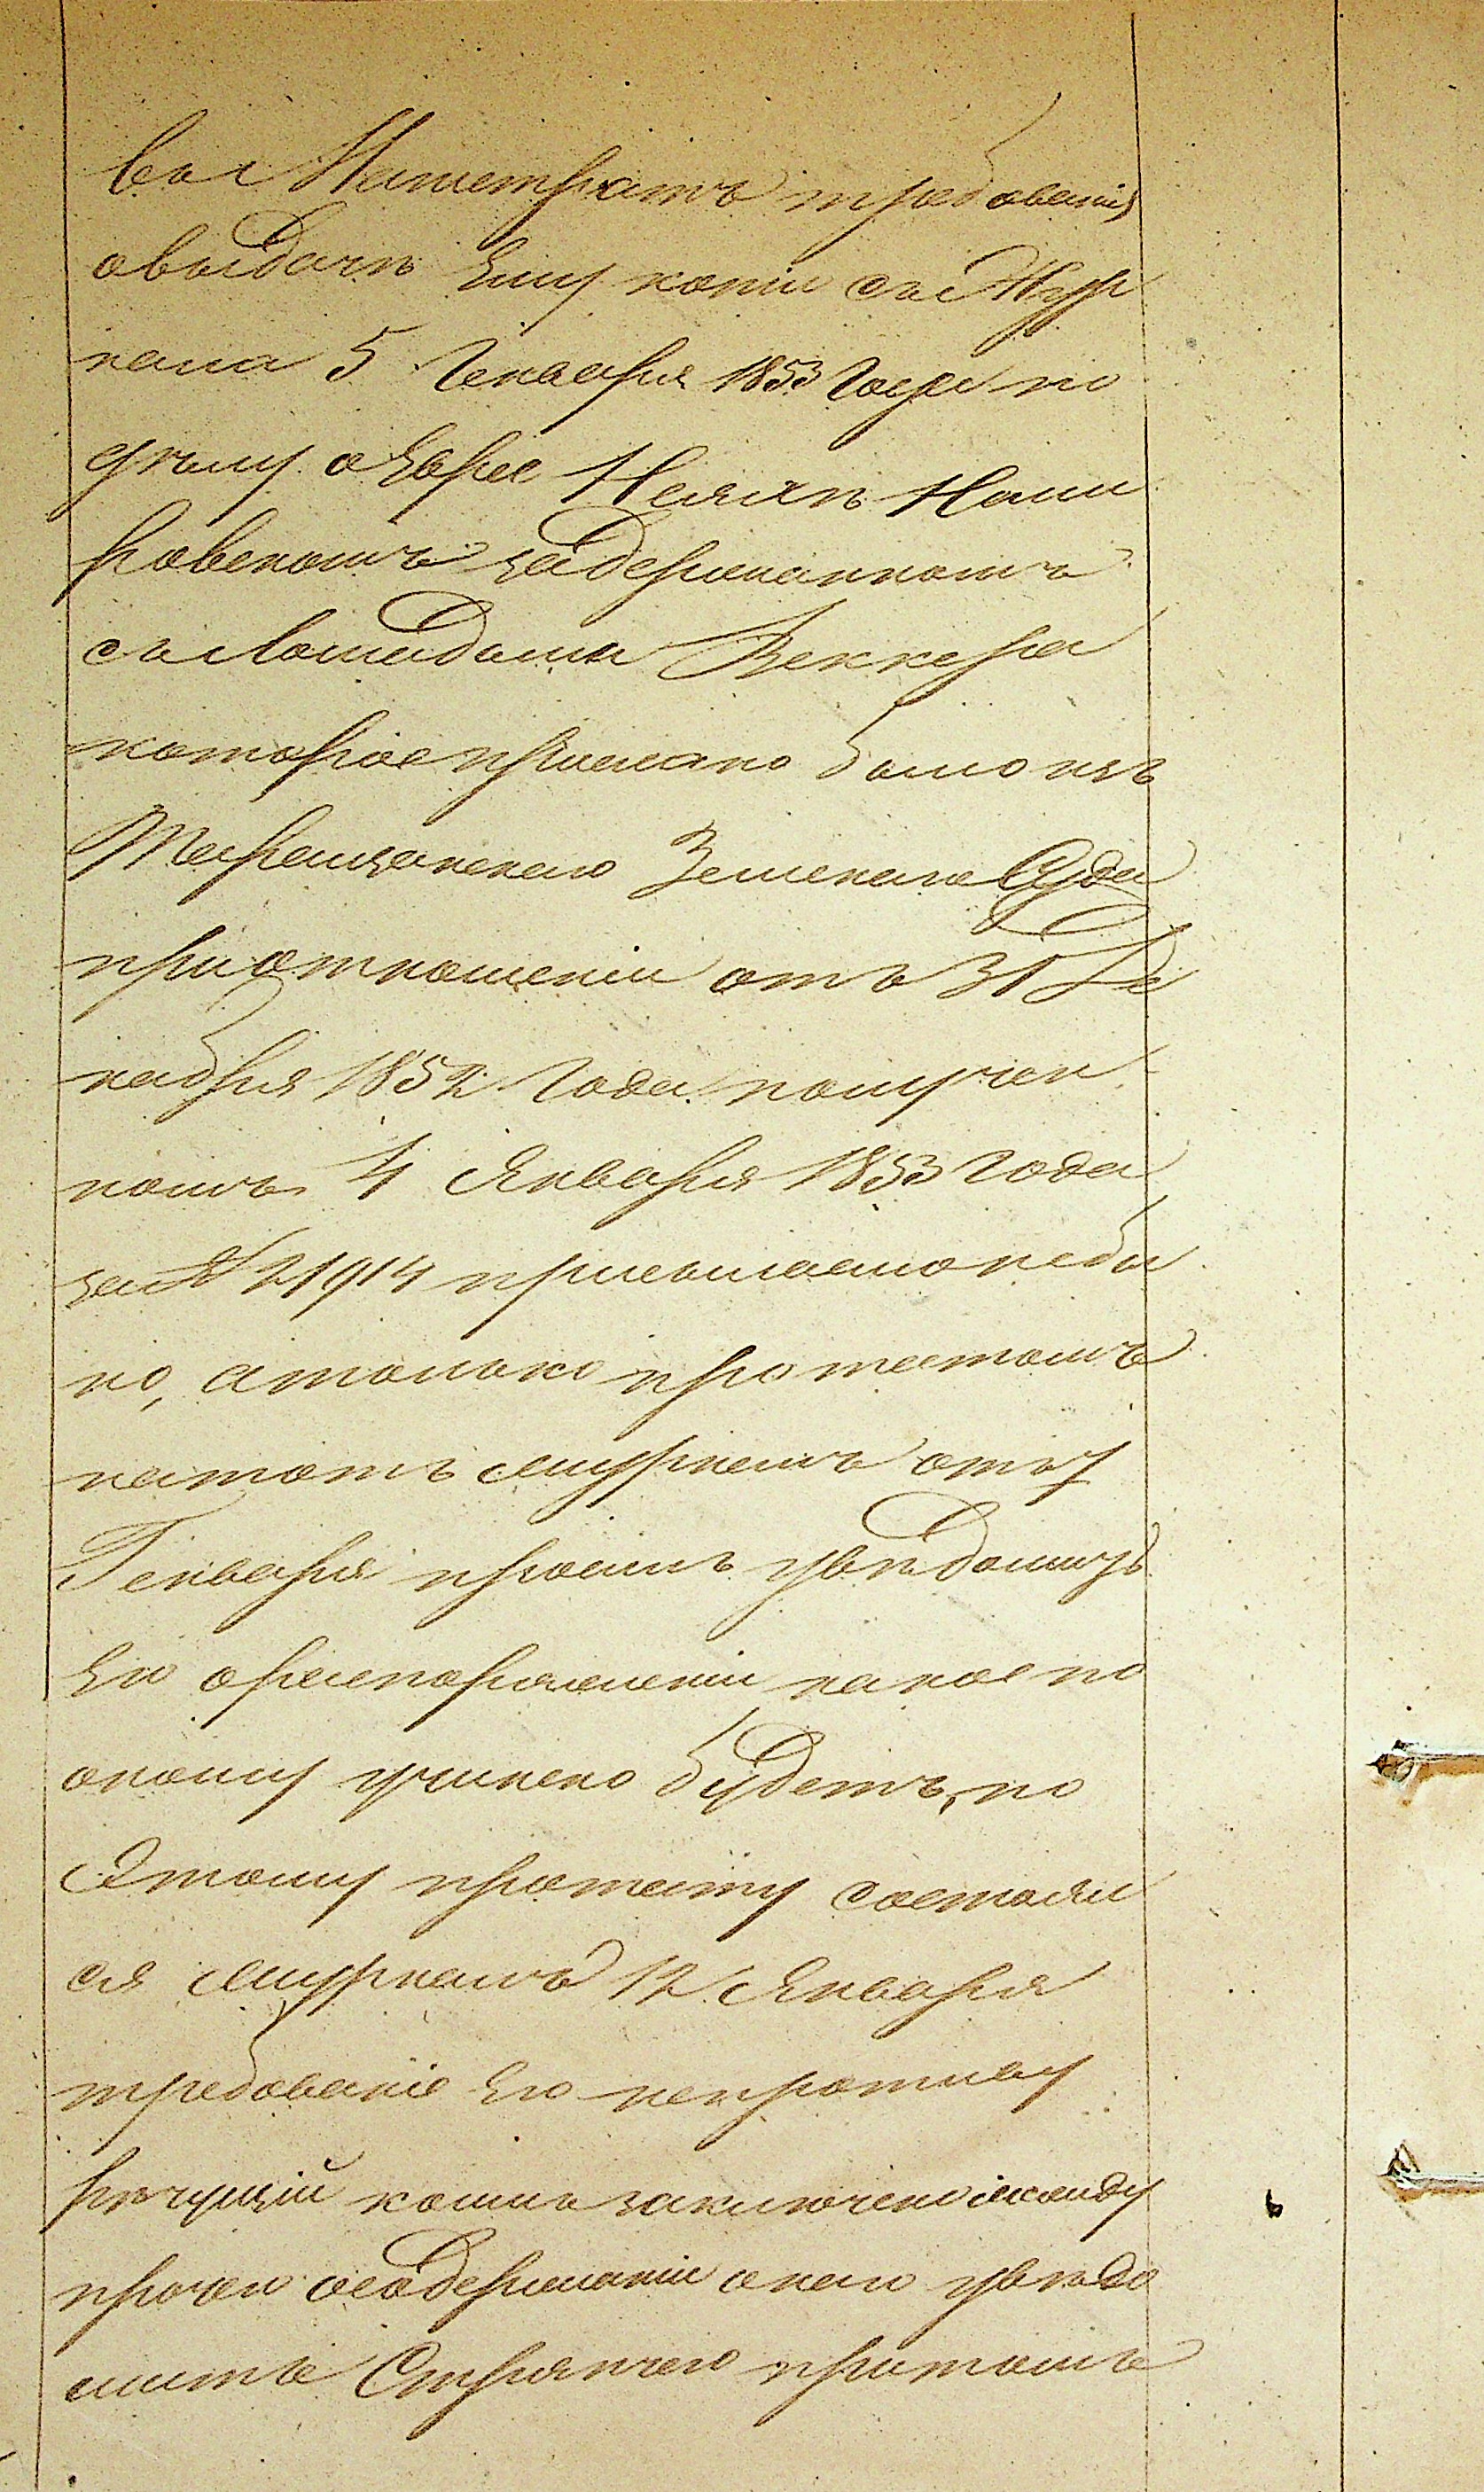 въ Магистратъ требованія
овыдачѣ Ему копіи съ Жур
нала 5 Генваря 1853 года по
дѣлу о Евреѣ
ровскомъ задержанномъ
съ лошадьми Беккера
которое прислано было изъ
Таращанскаго Земскаго Суда
при отношеніи отъ 31 Де
кабря 1852 года получен
номъ 4 Января 1853 года
за № 21914 присылаемо небы
ло, атолько протестомъ
натотъ журналъ отъ 7
Генваря просилъ увѣдомить
Его ораспоряженіи какое по
оному учинено будетъ, по
Этому протесту состоял
ся журналъ 12 Января
требованіе Его непротиву
рѣчущій коимъ заключено между
прочем осодержаніи онаго увѣдо
мить Стряпчего притомъ